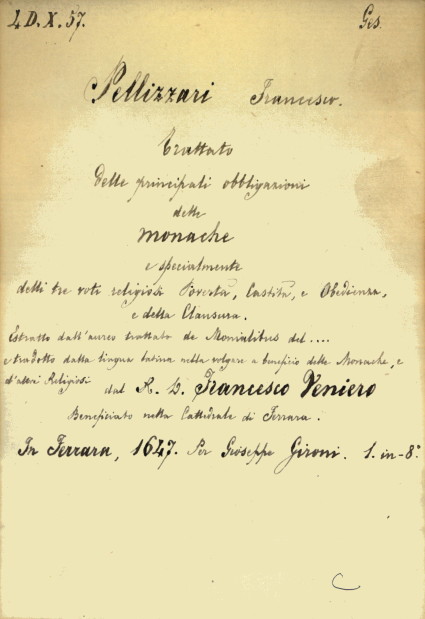 4. D. X. 57. Ges.
Pellizzari Francesco.
Trattato
delle principali obbligazioni
delle
Monache
e specialmente
delli tre voti religiosi Povertà, Castità, e Obedienza,
e della Clausura.
Estratto dall'aureo trattato de Monialibus del ....
e tradotto dalla lingua latina nella volgare a beneficio delle Monache, e
d'altri Religiosi dal R. D. Francesco Veniero
Beneficiato nella Cattedrale di Ferrara.
In Ferrara, 1647. Per Gioseppe Gironi. 1. in-8.°
C